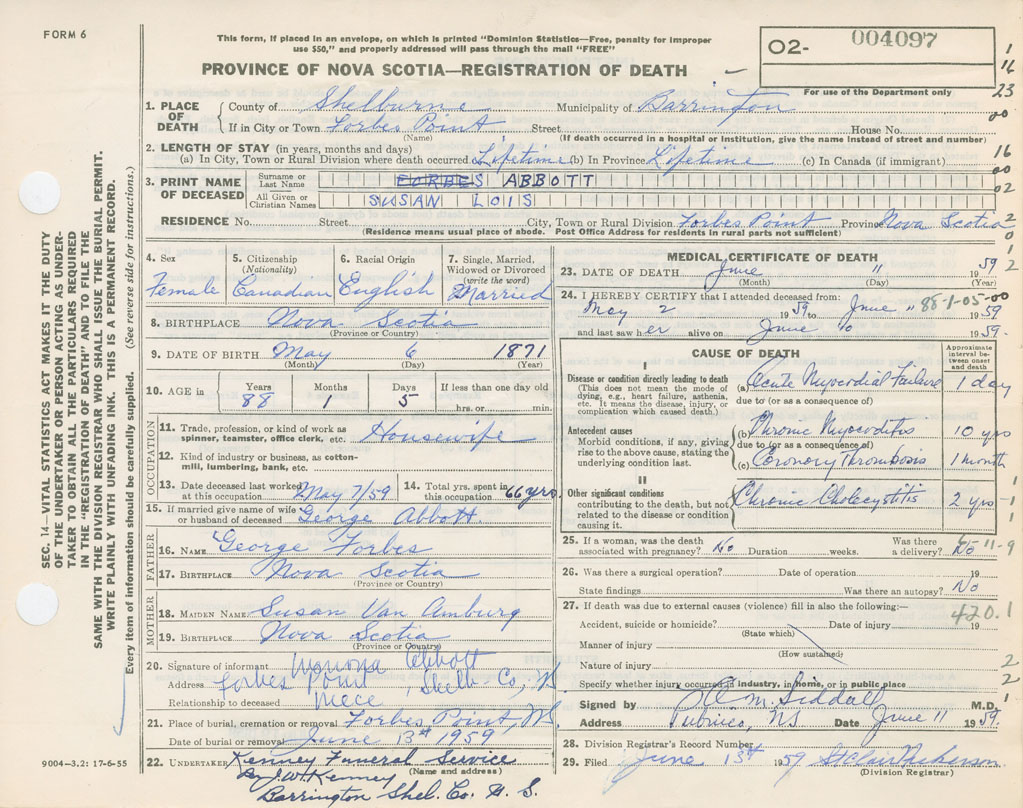 FORM 6
This form, if placed in an envelope, on which is printed "Dominion Statistics—Free, penalty for improper
use $50," and properly addressed will pass through the mail "FREE"
PROVINCE OF NOVA SCOTIA—REGISTRATION OF DEATH
O2- 004097
For use of the Department only
1
16
23
00
16
00
02
2
0
1
2
SEC. 14—VITAL STATISTICS ACT MAKES IT THE DUTY
OF THE UNDERTAKER OR PERSON ACTING AS UNDER-
TAKER TO OBTAIN ALL THE PARTICULARS REQUIRED
IN THE "REGISTRATION OF DEATH" AND TO FILE THE
SAME WITH THE DIVISION REGISTRAR WHO SHALL ISSUE THE BURIAL PERMIT.
WRITE PLAINLY WITH UNFADING INK. THIS IS A PERMANENT RECORD.
Every item of information should be carefully supplied. (See reverse side for instructions.)
1. PLACE OF DEATH County of Shelburne Municipality of Barrington
If in City or Town Forbes Point Street House No.
(Name) (If death occurred in a hospital or institution, give the name instead of street and number)
2. LENGTH OF STAY (in years, months and days)
(a) In City, Town or Rural Division where death occurred Lifetime (b) In Province Lifetime (c) In Canada (if immigrant)
3. PRINT NAME OF DECEASED Surname or Last Name FORBES ABBOTT
All Given or Christian Names SUSAN LOIS
RESIDENCE No. Street City, Town or Rural Division Forbes Point Province Nova Scotia
(Residence means usual place of abode. Post Office Address for residents in rural parts not sufficient)
4. Sex 5. Citizenship (Nationality) 6. Racial Origin 7. Single, Married, Widowed or Divorced (write the word)
Female Canadian English Married
8. BIRTHPLACE Nova Scotia
(Province or Country)
9. DATE OF BIRTH May 6 1871
(Month) (Day) (Year)
10. AGE in Years Months Days If less than one day old
88 1 5 hrs. or min.
OCCUPATION
11. Trade, profession, or kind of work as spinner, teamster, office clerk, etc. Housewife
12. Kind of industry or business, as cotton-mill, lumbering, bank, etc.
13. Date deceased last worked at this occupation May 7/59 14. Total yrs. spent in this occupation 66 yrs
15. If married give name of wife or husband of deceased George Abbott.
FATHER
16. NAME George Forbes
17. BIRTHPLACE Nova Scotia
(Province or Country)
MOTHER
18. MAIDEN NAME Susan Van Amburg
19. BIRTHPLACE Nova Scotia
(Province or Country)
20. Signature of informant Abbott
Address Forbes Point, Shelb Co, N
Relationship to deceased niece
21. Place of burial, cremation or removal Forbes Point, NS
Date of burial or removal June 13th 1959
22. UNDERTAKER Kenney Funeral Service
(Name and address)
By J.W. Kenney
Barrington Shel. Co. N. S.
9004—3.2: 17-6-55
MEDICAL CERTIFICATE OF DEATH
23. DATE OF DEATH June 11 1959
(Month) (Day) (Year)
24. I HEREBY CERTIFY that I attended deceased from:
May 2 1959 to June 11 1959
88-1-05-00
and last saw her alive on June 10 1959.
CAUSE OF DEATH
Approximate interval between onset and death
I
Disease or condition directly leading to death (a) Acute Myocordial Failure 1 day
(This does not mean the mode of dying, e.g., heart failure, asthenia, etc. It means the disease, injury, or complication which caused death.)
due to (or as a consequence of)
Antecedent causes (b) Chronic Myocoditis 10 yrs
Morbid conditions, if any, giving rise to the above cause, stating the underlying condition last.
due to (or as a consequence of)
(c) Coronory Thrombosis 1 month
II
Other significant conditions contributing to the death, but not related to the disease or condition causing it.
Chronic Cholecystitis 2 yrs
1
1
1
25. If a woman, was the death associated with pregnancy? No Duration weeks. Was there a delivery? No
11-9
26. Was there a surgical operation? Date of operation 19
State findings Was there an autopsy? No
27. If death was due to external causes (violence) fill in also the following:—
420.1
Accident, suicide or homicide? Date of injury 19
(State which)
Manner of injury
(How sustained)
Nature of injury
2
Specify whether injury occurred in industry, in home, or in public place
2
Signed by A M. Siddall M.D.
1
Address Pubnico, NS Date June 11 1959.
28. Division Registrar's Record Number
29. Filed June 13th 1959 St Clair Nickerson
(Division Registrar)